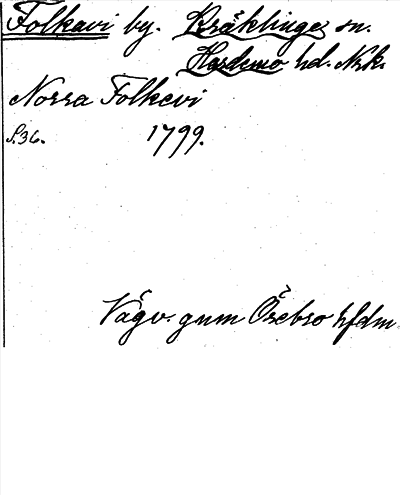 Folkavi by. Kräklinge sn.
Hardemo hd. Nrk.
Norra Folkevi
S.36. 1799.
Vägv. gnm Örebro hfdm